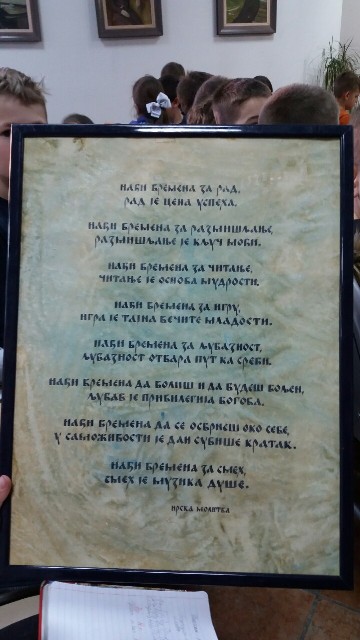 НАЂИ ВРЕМЕНА ЗА РАД,
РАД ЈЕ ЦЕНА УСПЕХА.
НАЂИ ВРЕМЕНА ЗА РАЗМИШЉАЊЕ,
РАЗМИШЉАЊЕ ЈЕ КЉУЧ МОЋИ.
НАЂИ ВРЕМЕНА ЗА ЧИТАЊЕ,
ЧИТАЊЕ ЈЕ ОСНОВА МУДРОСТИ.
НАЂИ ВРЕМЕНА ЗА ИГРУ,
ИГРА ЈЕ ТАЈНА ВЕЧИТЕ МЛАДОСТИ.
НАЂИ ВРЕМЕНА ЗА ЉУБАЗНОСТ,
ЉУБАЗНОСТ ОТВАРА ПУТ КА СРЕЋИ.
НАЂИ ВРЕМЕНА ДА ВОЛИШ И ДА БУДЕШ ВОЉЕН,
ЉУБАВ ЈЕ ПРИВИЛЕГИЈА БОГОВА.
НАЂИ ВРЕМЕНА ДА СЕ ОСВРНЕШ ОКО СЕБЕ,
У САМОЖИВОСТИ ЈЕ ДАН СУВИШЕ КРАТАК.
НАЂИ ВРЕМЕНА ЗА СМЕХ,
СМЕХ ЈЕ МУЗИКА ДУШЕ.
ИРСКА МОЛИТВА